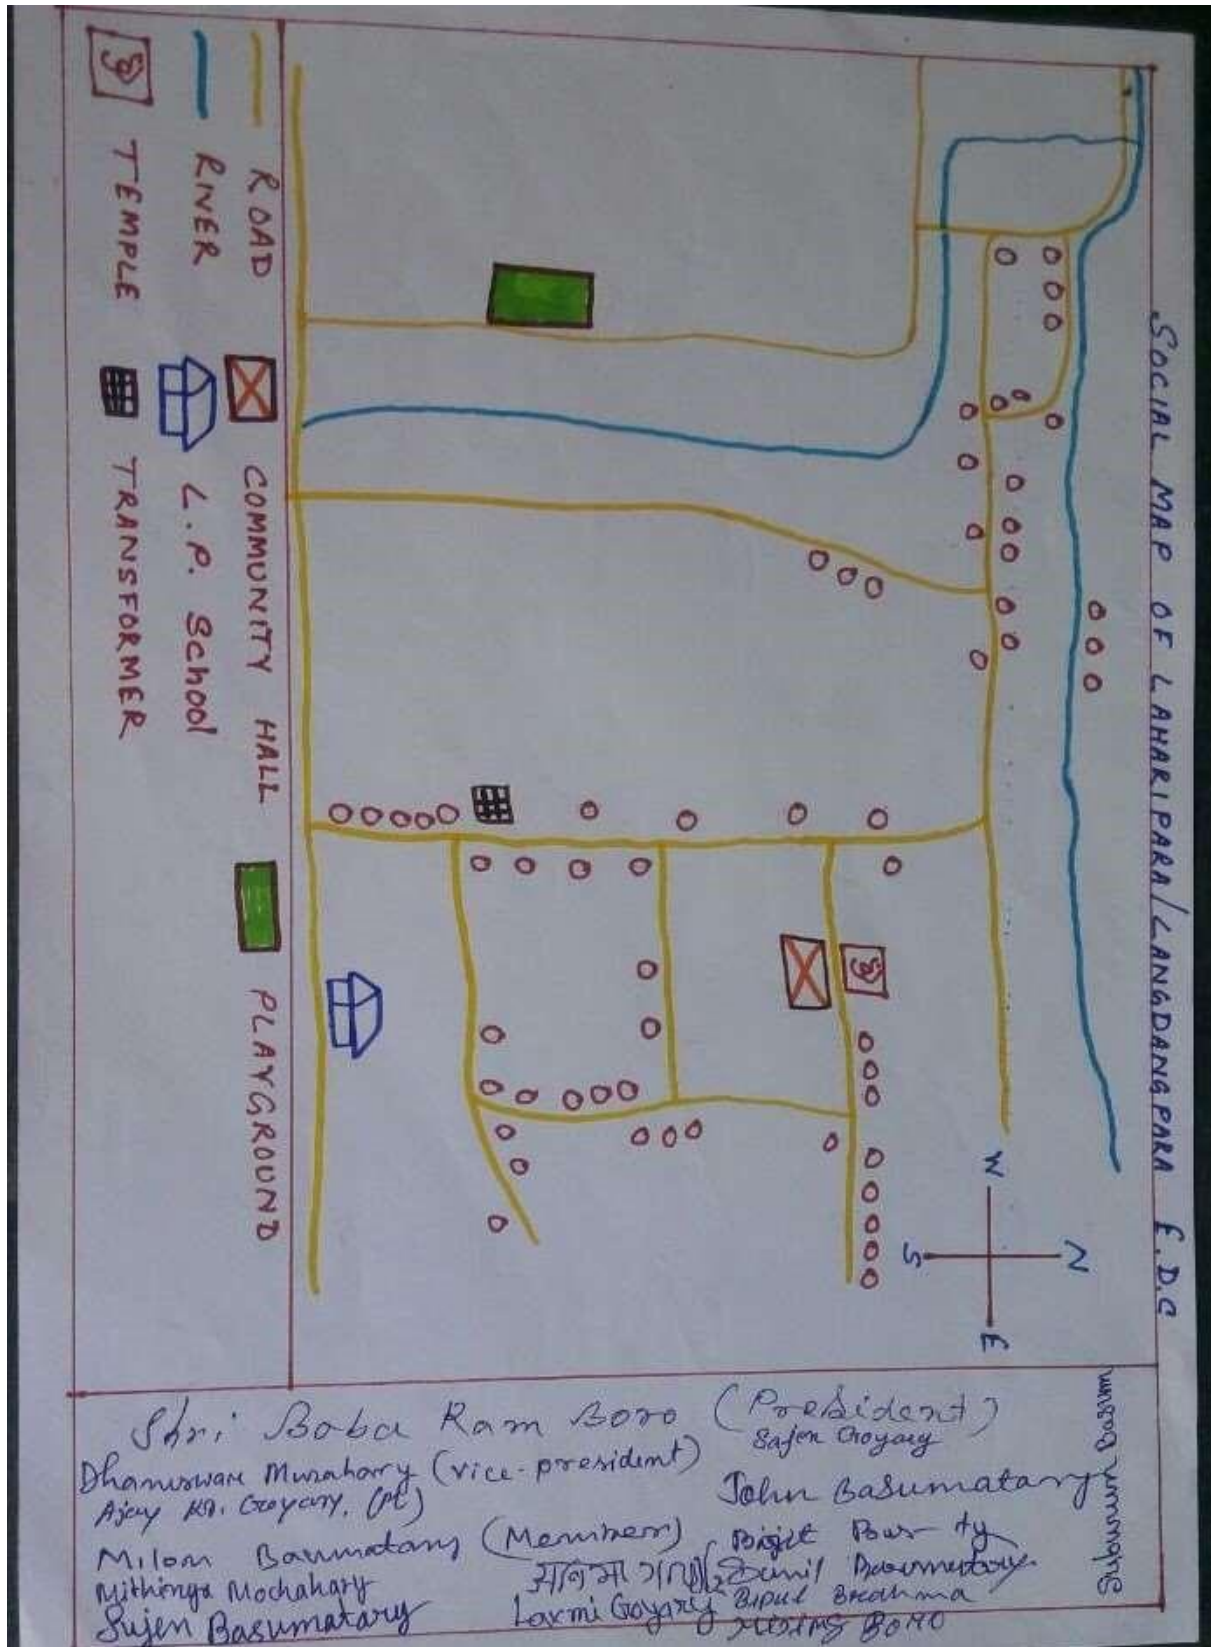 SOCIAL MAP OF LAHARIPARA/LANGDANGPARA E.D.C
W
N
S
E
ROAD
RIVER
TEMPLE
COMMUNITY HALL
L.P. School
TRANSFORMER
PLAYGROUND
Shri Baba Ram Boro (President)
Sajen Goyary
Dhaneswar Mushahary (vice-president)
Ajay Kr. Goyary,
John Basumatary
Milon Basumatary (Member)
Mithinga Mochahary
Sunil Basumatary
Sujen Basumatary
Laxmi Goyary
Bipul Brahma
BORO